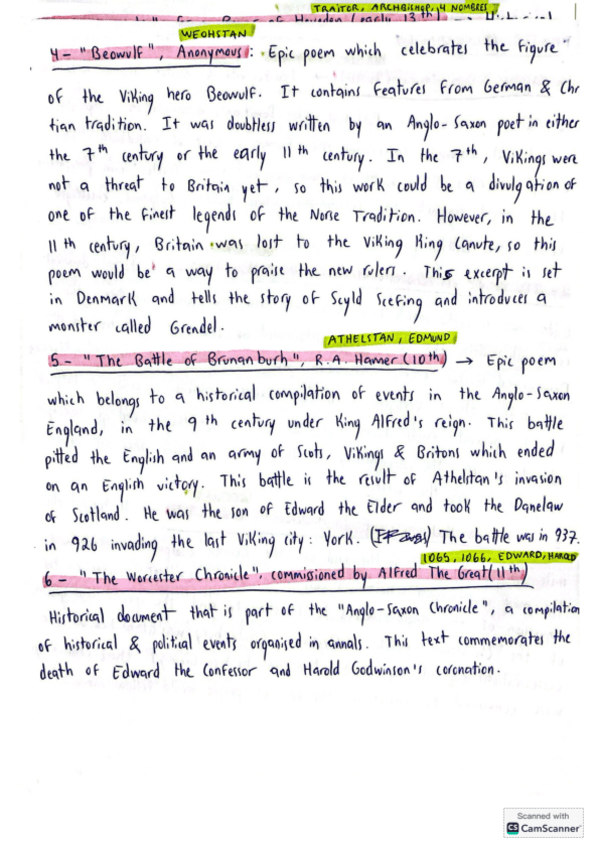 TRAITOR, ARCHBISHOP, 4 NOMBRES
of Hoveden (early 13th)
WEOHSTAN
4- "Beowulf", Anonymous: Epic poem which celebrates the figure
of the Viking hero Beowulf. It contains features from German & Chr
tian tradition. It was doubtless written by an Anglo-Saxon poet in either
the 7th century or the early 11th century. In the 7th, Vikings were
not a threat to Britain yet, so this work could be a divulgation of
one of the finest legends of the Norse Tradition. However, in the
11th century, Britain was lost to the Viking King Canute, so this
poem would be a way to praise the new rulers. This excerpt is set
in Denmark and tells the story of Scyld Scefing and introduces a
monster called Grendel.
ATHELSTAN, EDMUND
5- "The Battle of Brunanburh", R.A. Hamer (10th) → Epic poem
which belongs to a historical compilation of events in the Anglo-Saxon
England, in the 9th century under King Alfred's reign. This battle
pitted the English and an army of Scots, Vikings & Britons which ended
on an English victory. This battle is the result of Athelstan's invasion
of Scotland. He was the son of Edward the Elder and took the Danelaw
in 926 invading the last Viking city: York. The battle was in 937.
1065, 1066, EDWARD, HAROLD
6- "The Worcester Chronicle", commissioned by Alfred The Great (11th)
Historical document that is part of the "Anglo-Saxon Chronicle", a compilation
of historical & political events organised in annals. This text commemorates the
death of Edward the Confessor and Harold Godwinson's coronation.
Scanned with
CS CamScanner